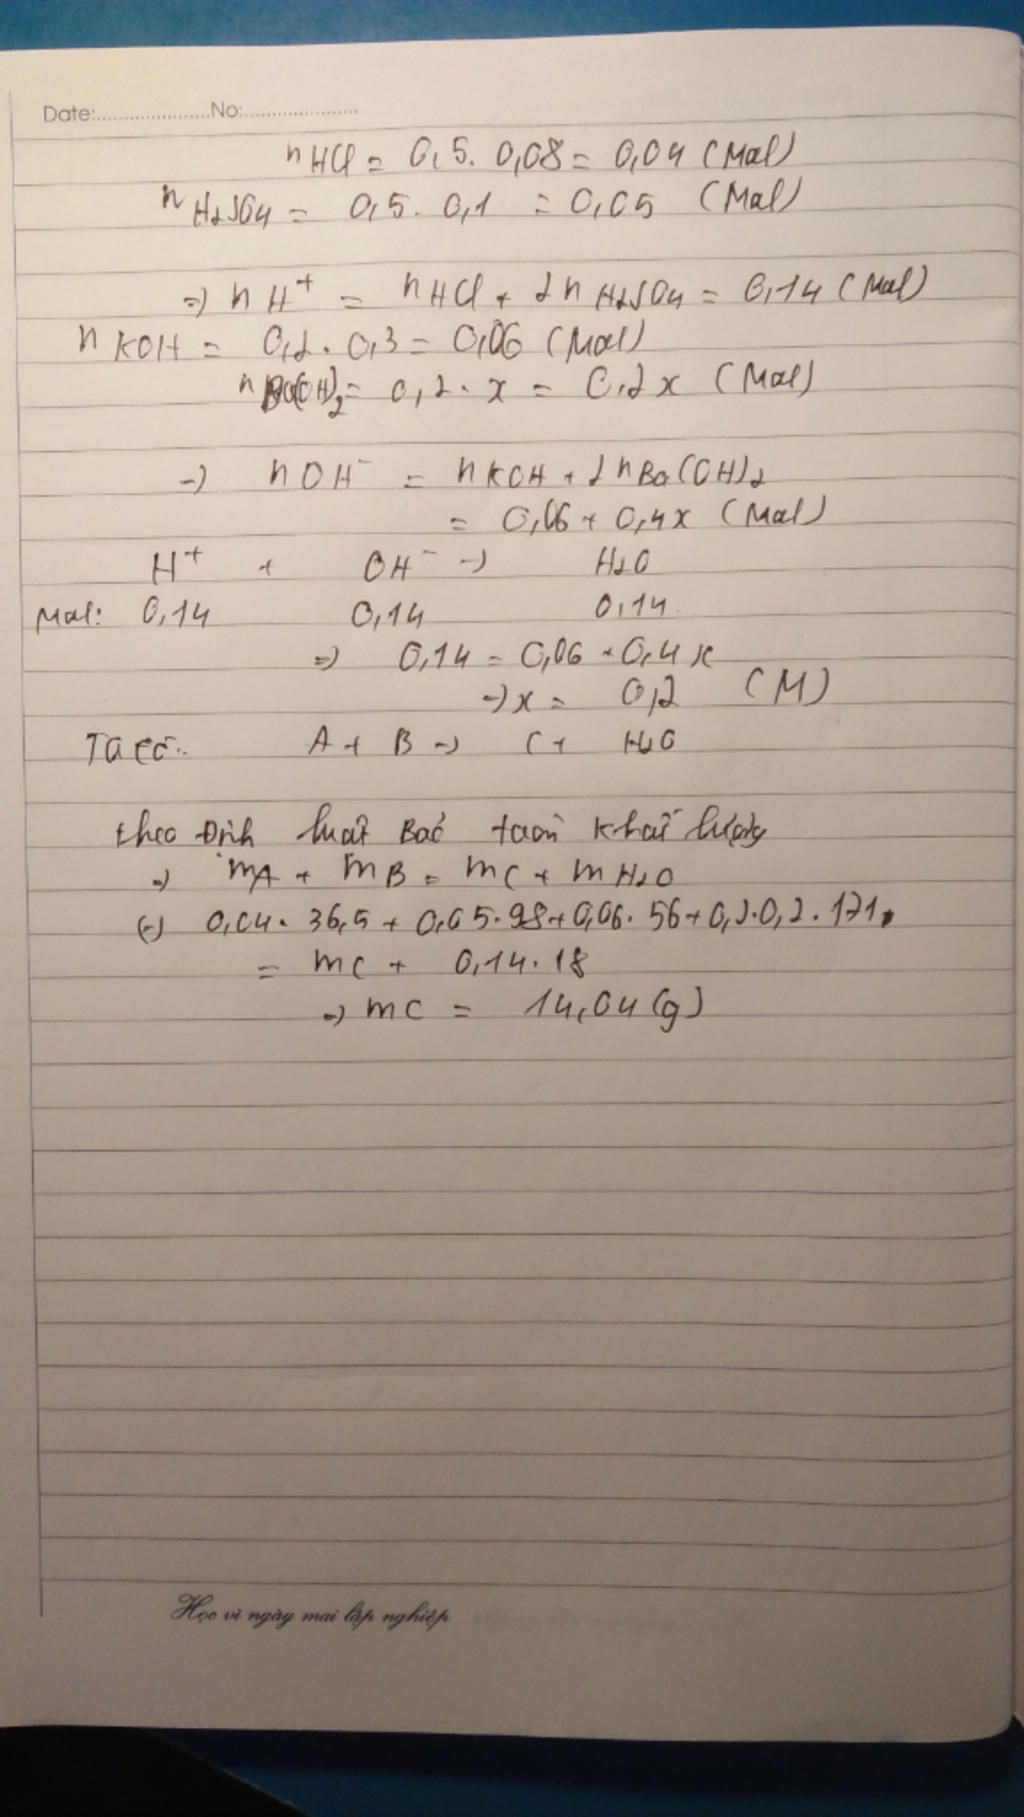 Date:......................No:.....................
nHCl = 0,5. 0,08 = 0,04 (Mol)
nH2SO4 = 0,5. 0,1 = 0,05 (Mol)
=) nH+ = nHCl + 2nH2SO4 = 0,14 (Mol)
nKOH = 0,2. 0,3 = 0,06 (Mol)
nBa(OH)2 = 0,2. x = 0,2x (Mol)
=) nOH- = nKOH + 2nBa(OH)2
= 0,06 + 0,4x (Mol)
H+ + OH- -) H2O
Mol: 0,14 0,14 0,14
=) 0,14 = 0,06 + 0,4x
-) x = 0,2 (M)
Ta có: A + B -) C + H2O
theo Định luật Bảo toàn Khối lượng
=) mA + mB = mC + mH2O
(=) 0,04. 36,5 + 0,05. 98 + 0,06. 56 + 0,2. 0,2. 171
= mC + 0,14. 18
=) mC = 14,04 (g)
Học vì ngày mai lập nghiệp